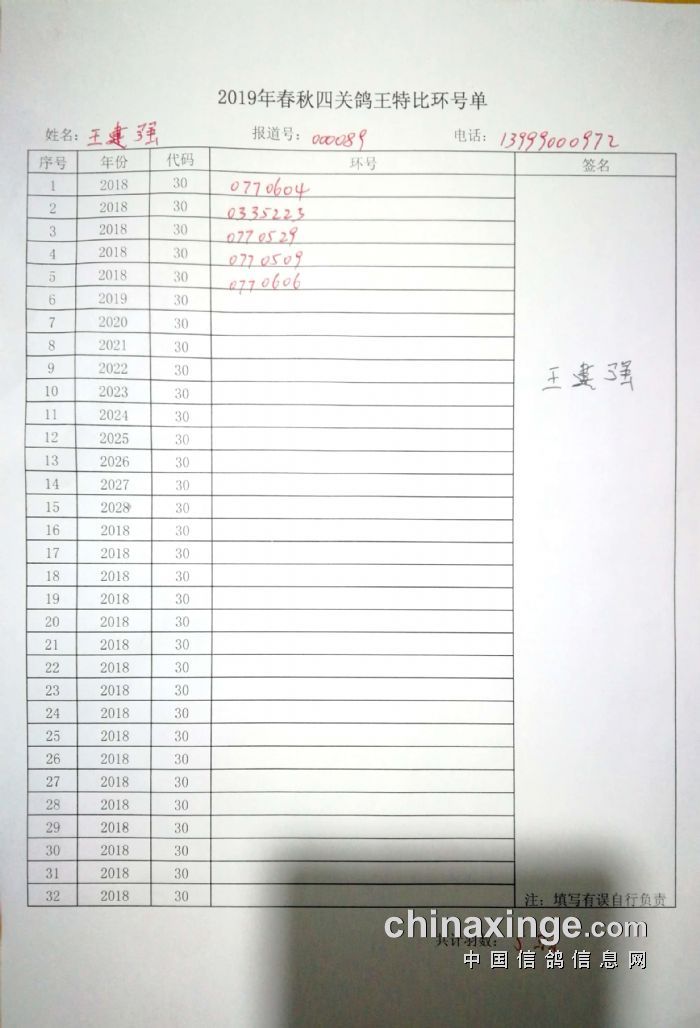 2019年春秋四关鸽王特比环号单
姓名: 王建强 报道号: 000089 电话: 13999000972
序号 年份 代码 环号 签名
1 2018 30 0770604
2 2018 30 0335223
3 2018 30 0770529
4 2018 30 0770509
5 2018 30 0770606
6 2019 30
7 2020 30
8 2021 30
9 2022 30
王建强
10 2023 30
11 2024 30
12 2025 30
13 2026 30
14 2027 30
15 2028 30
16 2018 30
17 2018 30
18 2018 30
19 2018 30
20 2018 30
21 2018 30
22 2018 30
23 2018 30
24 2018 30
25 2018 30
26 2018 30
27 2018 30
28 2018 30
29 2018 30
30 2018 30
31 2018 30
32 2018 30 注: 填写有误自行负责
chinaxinge.com
共计羽数: 5
中国信鸽信息网